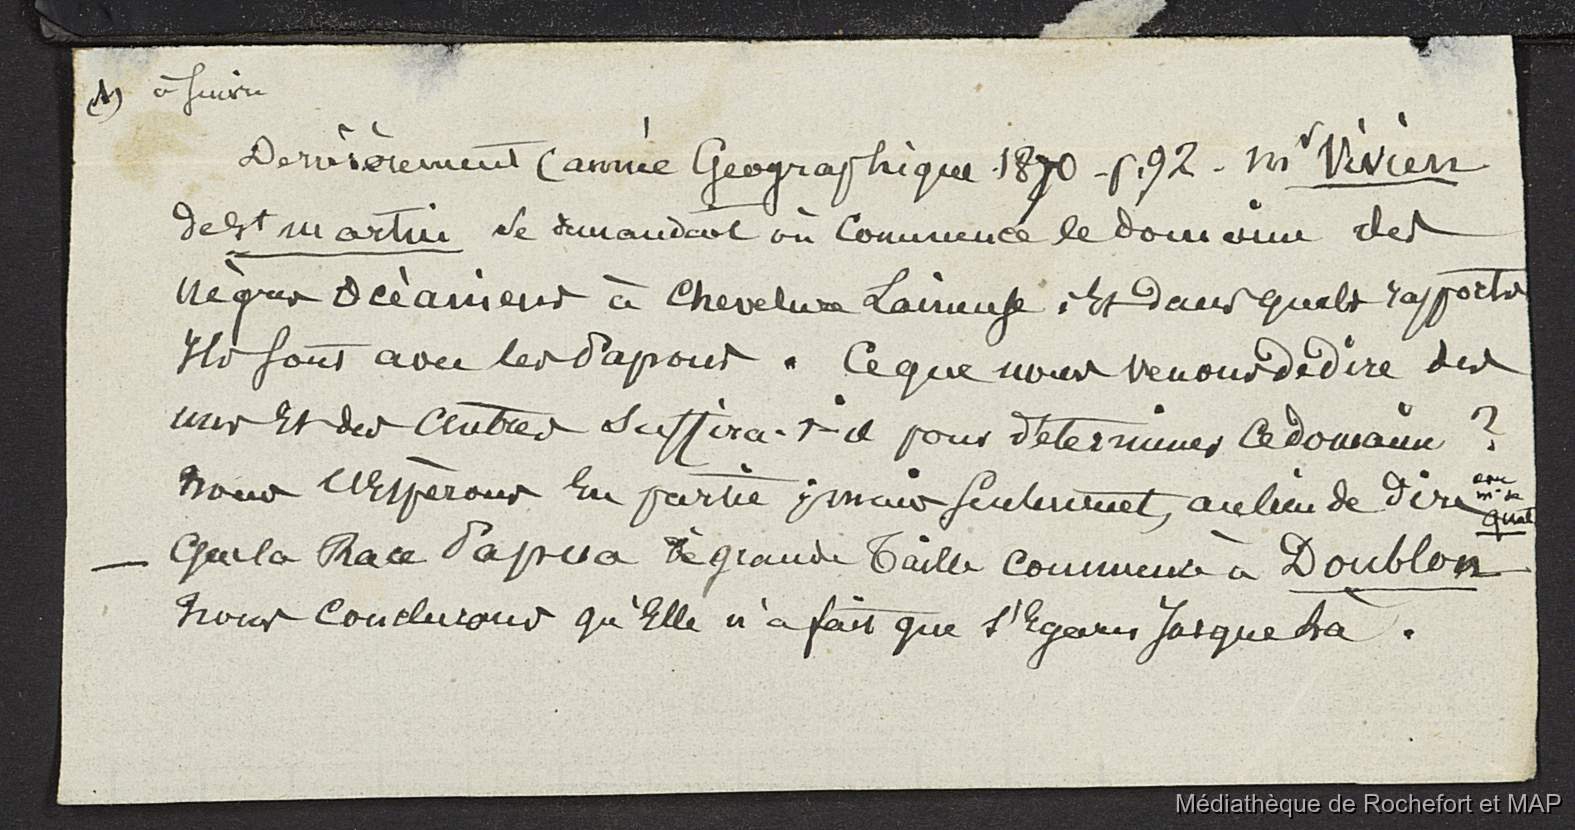 (A) à suivre
Dernièrement (année Géographique 1870 - p. 92 - Mr Vivien
de St Martin se demandait où commence le domaine des
nègres Océaniens à chevelure Laineuse, Et dans quels rapports
Ils sont avec les Papous. Ce que nous venons de dire des
uns Et des Autres suffira-t-il pour déterminer ce domaine ?
nous l'Espérons En partie ; mais seulement, au lieu de dire
avec mr de Quat
que la Race Papua de grande Taille commence à Doublon
nous conclurons qu'Elle n'a fait que s'Egarer Jusque là.
Médiathèque de Rochefort et MAP